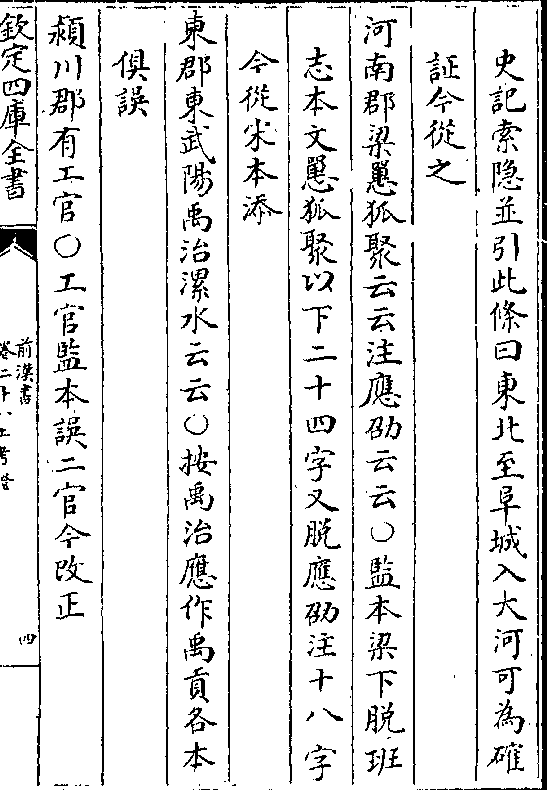 史記索隐並引此條曰東北至阜城入大河可為確
証今從之
河南郡梁㥄狐聚云云注應劭云云○監本梁下脱班
志本文㥄狐聚以下二十四字又脱應劭注十八字
今從宋本添
東郡東武陽禹治漯水云云○按禹治應作禹貢各本
俱誤
潁川郡有工官○工官監本誤二官今改正
欽定四庫全書
前漢書
卷二十八上考證
四